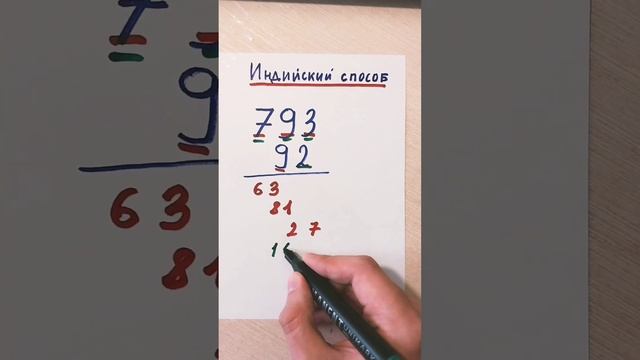 Индийский способ
793
92
63
81
27
1